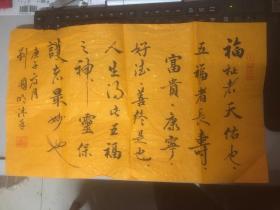 福社者天佑也
五福者長壽
富貴康寧
好德善終是也
人生得此五福
之神靈保
護者最妙也
庚子六月